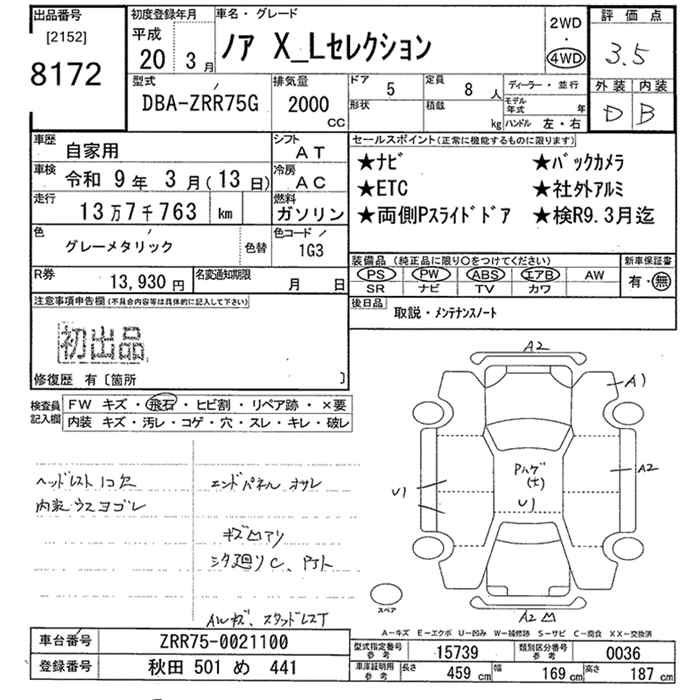 出品番号
[2152]
8172
初度登録年月
平成
20 3月
車名・グレード
ノア X_Lセレクション
2WD
・
4WD
評価点
3.5
外装 内装
D B
型式
DBA-ZRR75G
排気量
2000
CC
ドア 5
定員 8 人
形状
積載 kg
ディーラー・並行
モデル年式 年
ハンドル 左・右
車歴 自家用
シフト AT
車検 令和 9年 3月(13日)
冷房 AC
走行 13万7千763 km
燃料 ガソリン
色 グレーメタリック
色替
色コード 1G3
R券 13,930円
名変通知期限 月 日
セールスポイント(正常に機能するものに限ります)
★ナビ ★バックカメラ
★ETC ★社外アルミ
★両側Pスライドドア ★検R9.3月迄
装備品 (純正品に限り○をつけてください)
新車保証書
PS PW ABS エアB AW
有・無
SR ナビ TV カワ
後日品 取説・メンテナンスノート
注意事項申告欄(不具合内容等は具体的に記入して下さい)
初出品
修復歴 有〔箇所 〕
検査員記入欄
FW キズ・飛石・ヒビ割・リペア跡・×要
内装 キズ・汚レ・コゲ・穴・スレ・キレ・破レ
ヘッドレスト1コ欠
内装ウスヨゴレ
エンドパネル オサレ
キズ凹アリ
シタ廻りC、
アルキズ、スタッドレスT
A2
A1
Pハゲ
U1
A2
U1
A2凹
スペア
A-キズ E-エクボ U-凹み W-補修跡 S-サビ C-腐食 XX-交換済
車台番号 ZRR75-0021100
登録番号 秋田 501 め 441
型式指定番号 参考 15739
類別区分番号 参考 0036
車庫証明用 参考 長さ 459cm 幅 169cm 高さ 187cm